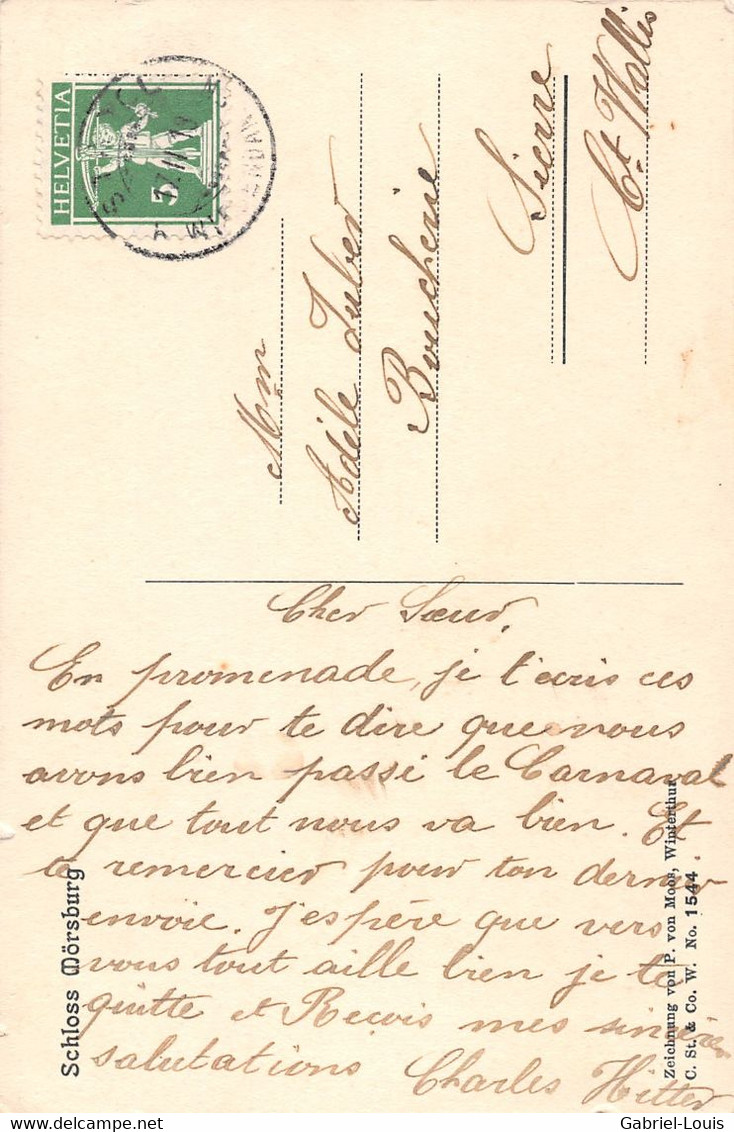 HELVETIA
5
Mme
Adèle Zuber
Boucherie
Sierre
Ct. Wallis
Cher Sœur,
En promenade, je t'ecris ces
mots pour te dire que nous
avons bien passé le Carnaval
et que tout nous va bien. Et
te remercier pour ton dernier
envoie. J'espère que vers
vous tout aille bien je te
quitte et Reçois mes sincères
salutations Charles Hitter
Schloss Mörsburg
Zeichnung von P. von Moos, Winterthur
C. St. & Co. W. No. 1544
Gabriel-Louis